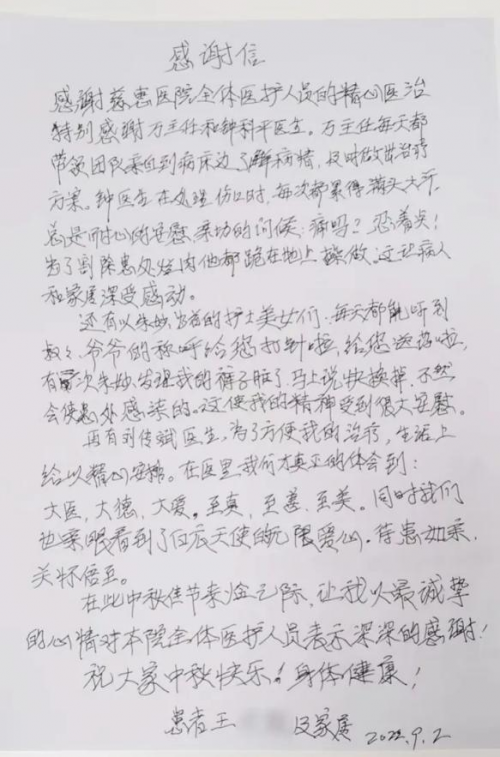 感谢信
感谢慈惠医院全体医护人员的精心医治
特别感谢万主任和钟科平医生。万主任每天都
带领团队来到病床边了解病情，及时做出治疗
方案。钟医生在处理伤口时，每次都累得满头大汗，
总是耐心的安慰，亲切的问候：痛吗？忍着点！
为了割除患处烂肉他都跪在地上操做，这让病人
和家属深受感动。
还有以朱 为首的护士美女们：每天都能听到
叔叔、爷爷的称呼给您打针啦，给您送药啦，
有一次朱 发现我的裤子脏了，马上说快换掉，不然
会使患处感染的。这使我的精神受到很大安慰。
再有刘传斌医生，为了方便我的治疗，生活上
给以精心安排。在医里我们才真正的体会到：
大医，大德，大爱。至真，至善，至美。同时我们
也亲眼看到了白衣天使的无限爱心。待患如亲，
关怀倍至。
在此中秋佳节来临之际，让我以最诚挚
的心情对本院全体医护人员表示深深的感谢！
祝大家中秋快乐！身体健康！
患者王 及家属 2022.9.2